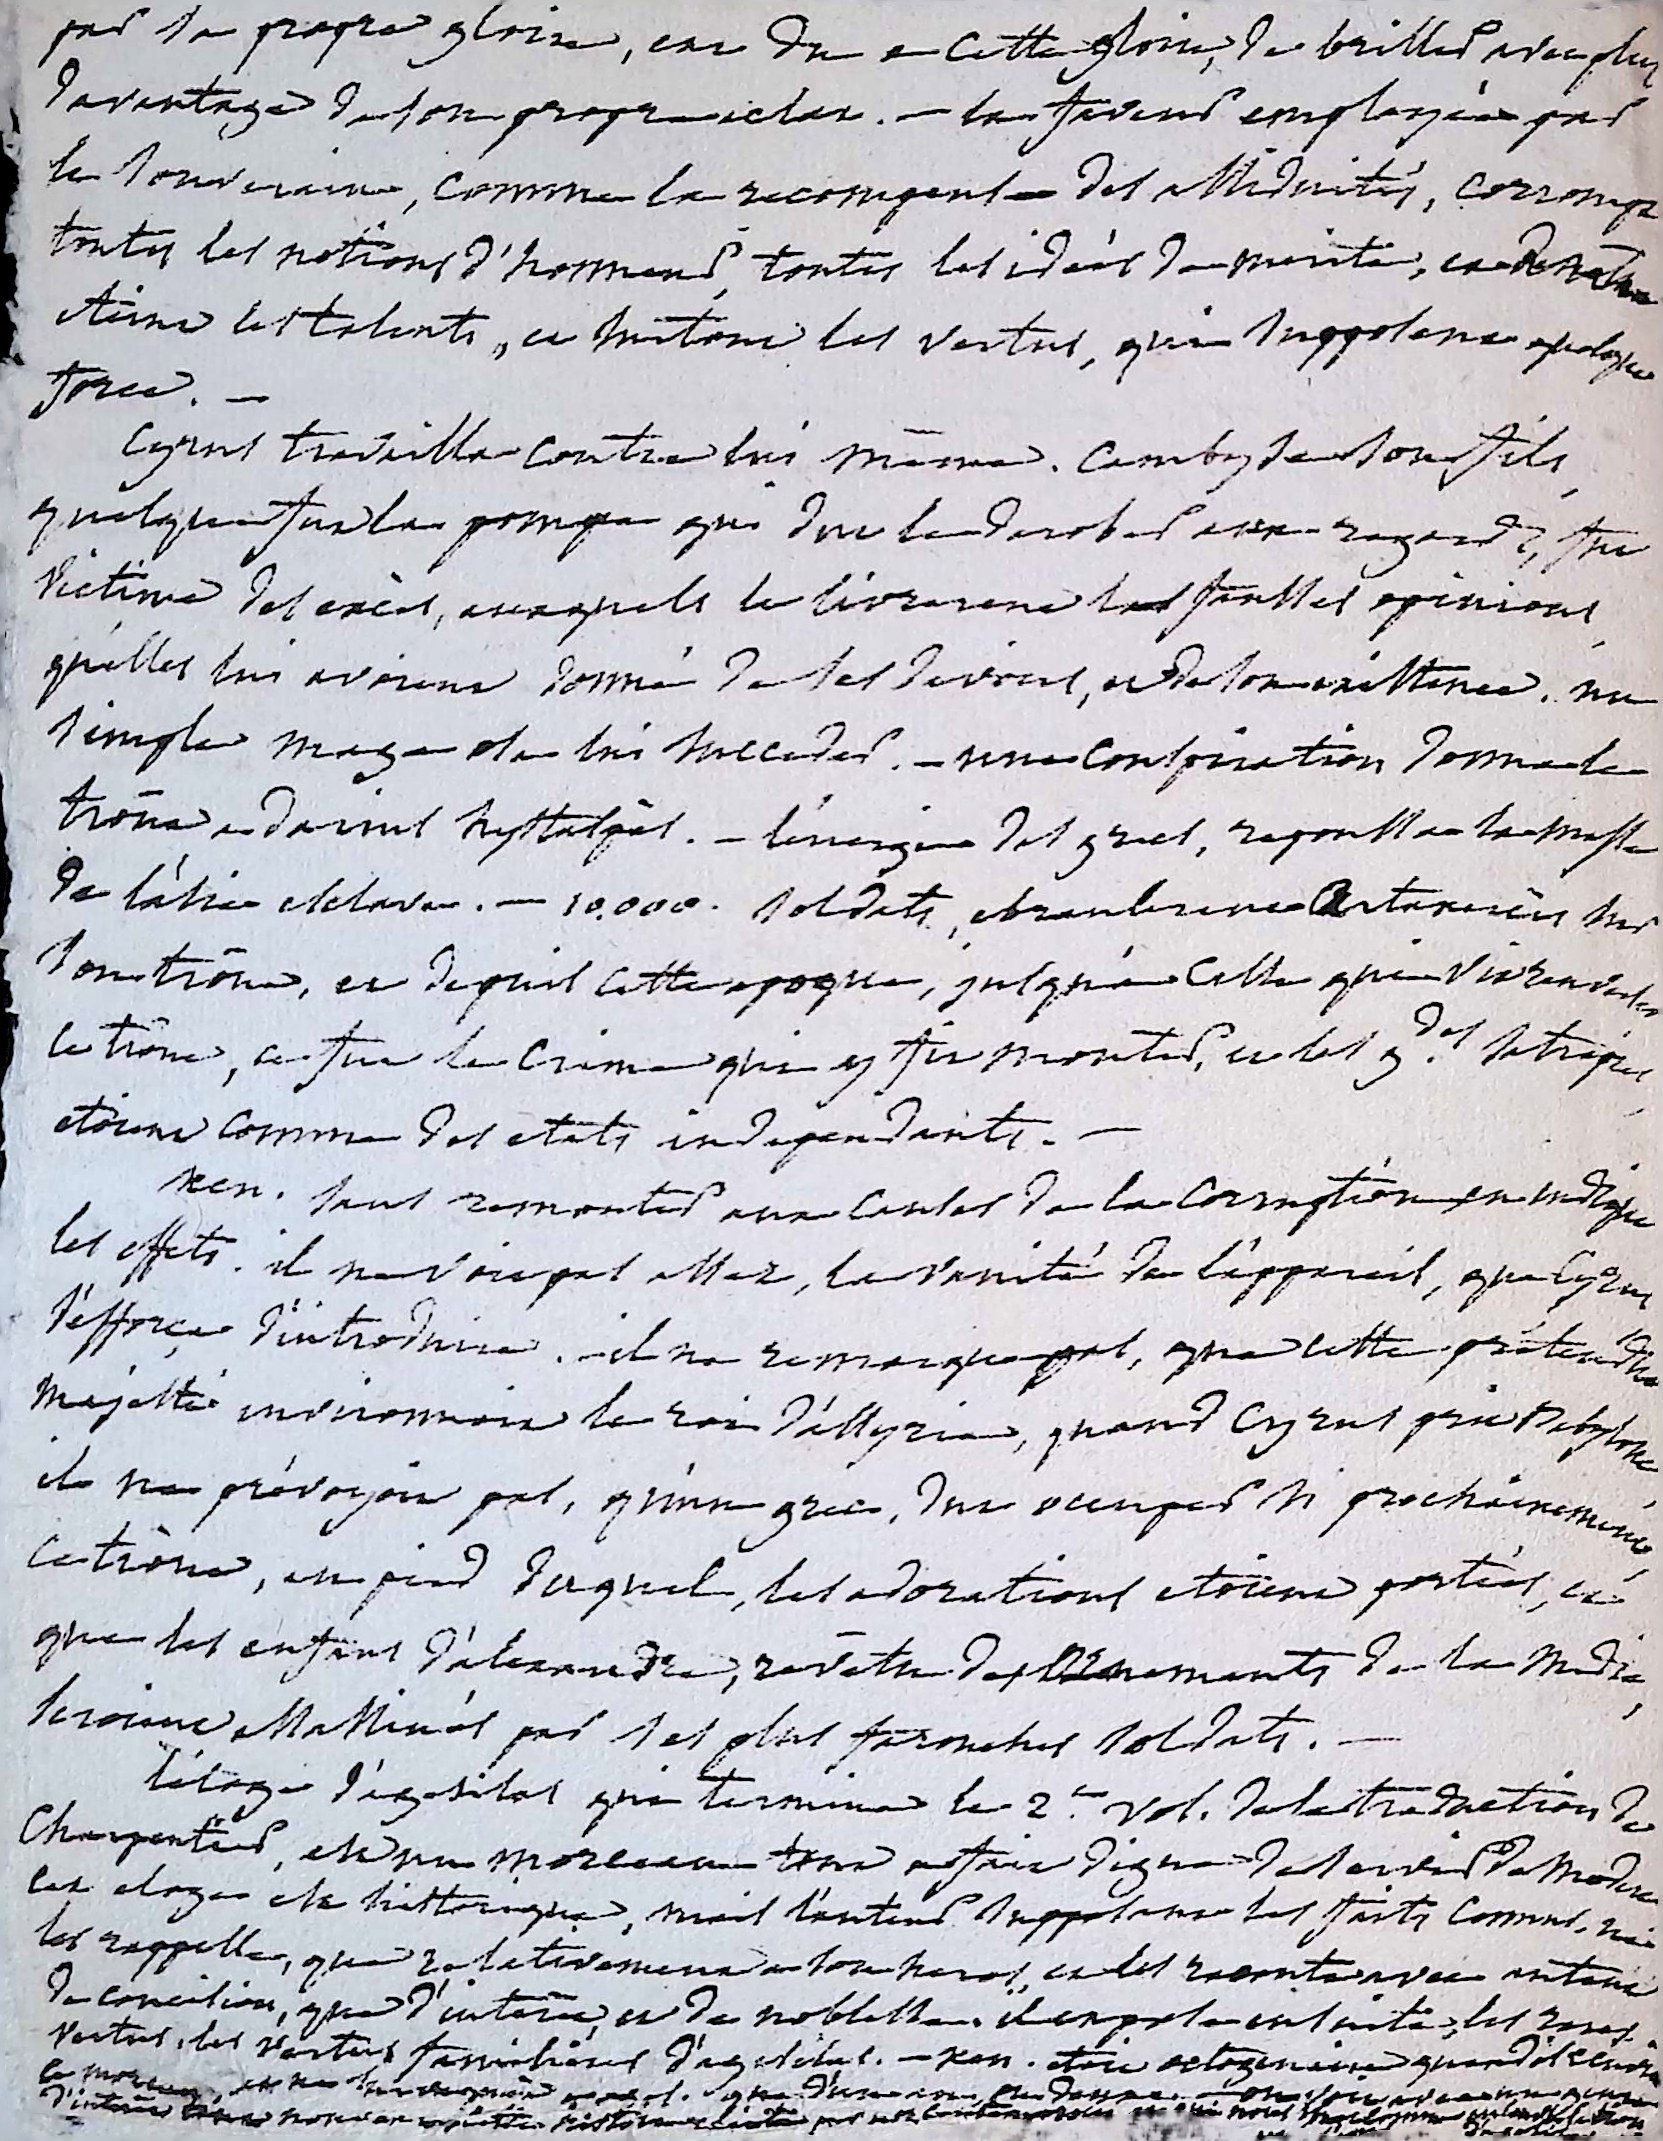 par sa propre gloire, et du a cette gloire, de briller avec plus
davantage de son propre eclat. — la faveur employée par
le souverain, comme la recompense des assiduités, corrompt
toutes les notions d'honneur, toutes les idées de merite, et
éteint les talents, et surtout les vertus, qui supposent quelque
force. —
Cyrus travailla contre lui même. Cambyse son fils,
quelque fut la pompe qui dut le derober aux regards, fut
victime des excès, auxquels le livrerent les fausses opinions
qu'elles lui avoient donné de ses devoirs, et de son existence. un
simple mage osa lui succeder. — une conspiration donna le
trône a darius hystaspès. — l'énergie des grecs, repoussa la masse
de l'asie esclave. — 10.000. soldats, ebranlerent Artaxercès sur
son trône, et depuis cette epoque, jusqu'à celle qui vit renverser
ce trône, ce fut le crime qui y fit monter, et les gdes satrapies
étoient comme des etats independants. —
xen. sans remonter aux causes de la corruption en indique
les effets. il ne voit pas assez, la vanité de l'appareil, que Cyrus
s'efforça d'introduire. — il ne remarque pas, que cette prétendue
majesté environnoit le roi d'assyrie, quand Cyrus prit Babylone
il ne prévoyoit pas, qu'un grec, dut occuper si prochainement,
ce trône, au pied duquel, les adorations étoient portées, et
que les enfans d'alexandre, revêtu des ornements de la Medie,
seroient assassinés par ses plus farouches soldats. —
l'éloge d'agesilas qui termine le 2.e vol. de la traduction de
Charpentier, est un morceau tout a fait digne de servir de modele
cet eloge est historique, mais l'auteur supposant les faits connus, ne
les rappelle, que relativement a son heros, et les raconte avec autant
de concision, que d'intérêt, et de noblesse. il expose ensuite, les rares
vertus, les vertus familières d'agesilas. — xen. etoit octogenaire quand il ecrivit
ce morceau, et ne
d'intérêt nouveau histoire